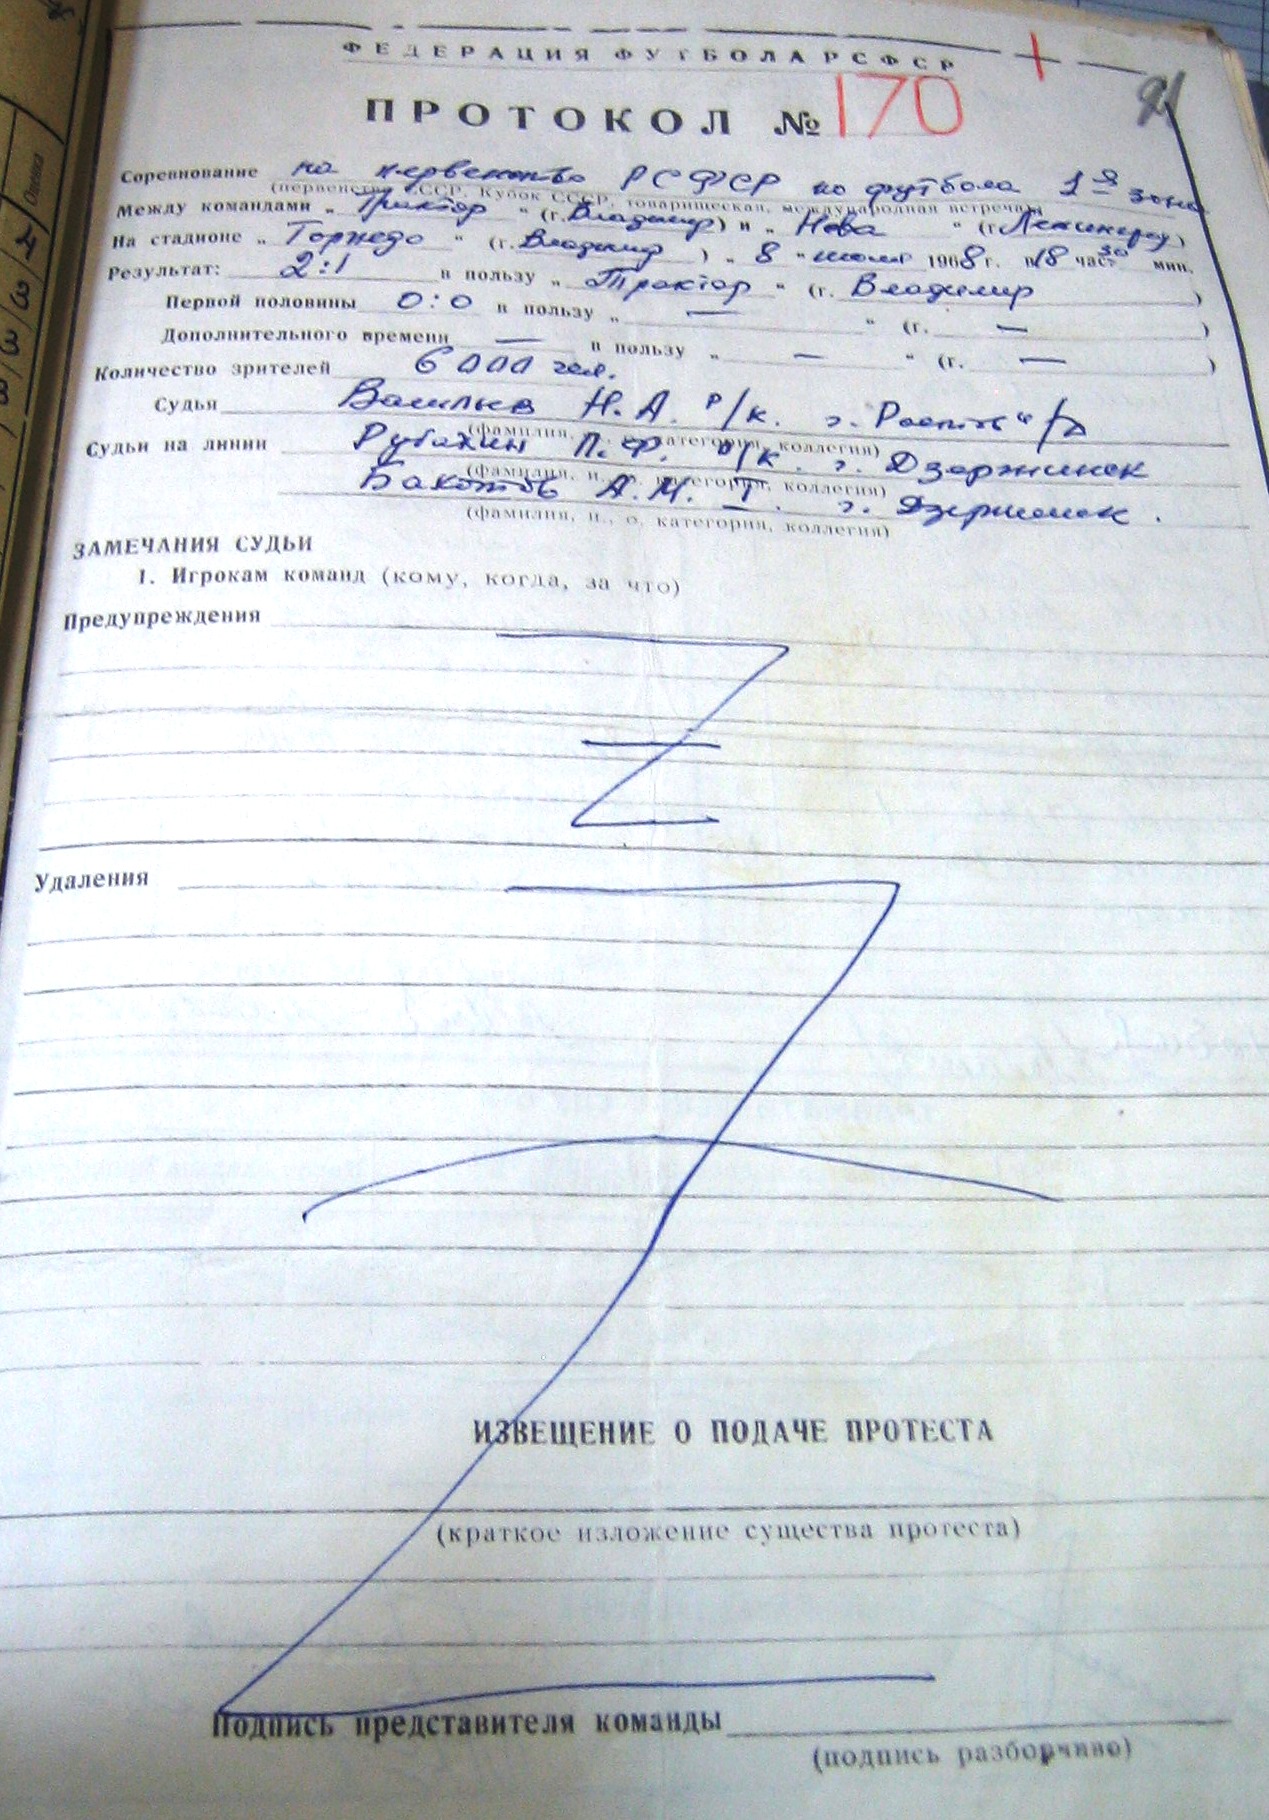 ФЕДЕРАЦИЯ ФУТБОЛА РСФСР
ПРОТОКОЛ № 170
Соревнование на первенство РСФСР по футболу 1я зона
(первенство СССР, Кубок СССР, товарищеская, международная встреча)
Между командами „ Трактор " (г. Владимир) и „ Нева " (г. Ленинград)
На стадионе „ Торпедо " (г. Владимир ) „ 8 " июля 1968 г. в 18 час. 30 мин.
Результат: 2:1 в пользу „ Трактор " (г. Владимир )
Первой половины 0:0 в пользу „ — " (г. — )
Дополнительного времени — в пользу „ — " (г. — )
Количество зрителей 6000 чел.
Судья Васильев Н.А. р/к. г. Ростов н/Д
(фамилия, категория, коллегия)
Судьи на линии Рубахин П.Ф. р/к. г. Дзержинск
(фамилия, и., о. категория, коллегия)
А.М. I. г. Дзержинск.
(фамилия, и., о. категория, коллегия)
ЗАМЕЧАНИЯ СУДЬИ
1. Игрокам команд (кому, когда, за что)
Предупреждения
Удаления
ИЗВЕЩЕНИЕ О ПОДАЧЕ ПРОТЕСТА
(краткое изложение существа протеста)
Подпись представителя команды
(подпись разборчиво)